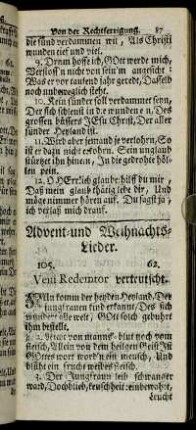 Von der Rechtfertigung. 87
die sünd verdammen wil, Als Christi
wunden tief und viel.
9. Drum hoff ich, GOtt werde mich,
Verstoß'n nicht von sein'm angesicht:
Was er vor tausend jahr geredt, Dasselb
noch unbweglich steht.
10. Kein sünder soll verdammet seyn,
Der sich scheust in die wunden ein, Des
grossen büssers JEsu Christ, Der aller
sünder Heyland ist.
11. Wird aber jemand je verlohrn, So
ist er darzu nicht erkohrn. Sein unglau
stürtzet ihn hinein, In die gedrohte höl
len pein.
12. O HErr ich glaube, hilff du mir
Daß mein glaub thätig lebe dir, Und
möge nimmer hören auf. Du sagst ja,
ich verlaß mich drauf.
Advent-und Weihnachts-
Lieder.
105. 62.
Veni Redemtor verteutscht.
NUn komm der heyden Heyland, Der
jungfrauen kind erkannt, Des sich
wundert alle welt, GOtt solch geburt
ihm bestellt.
2. Nicht von manns-blut noch vom
fleisch, Allein von dem heiligen Geist Ist
GOttes wort word'n ein mensch, Und
blüht ein frucht weibes fleisch.
3. Der Jungfrauen leib schwanger
ward, Doch blieb keuschheit rein bewahrt,
Leucht